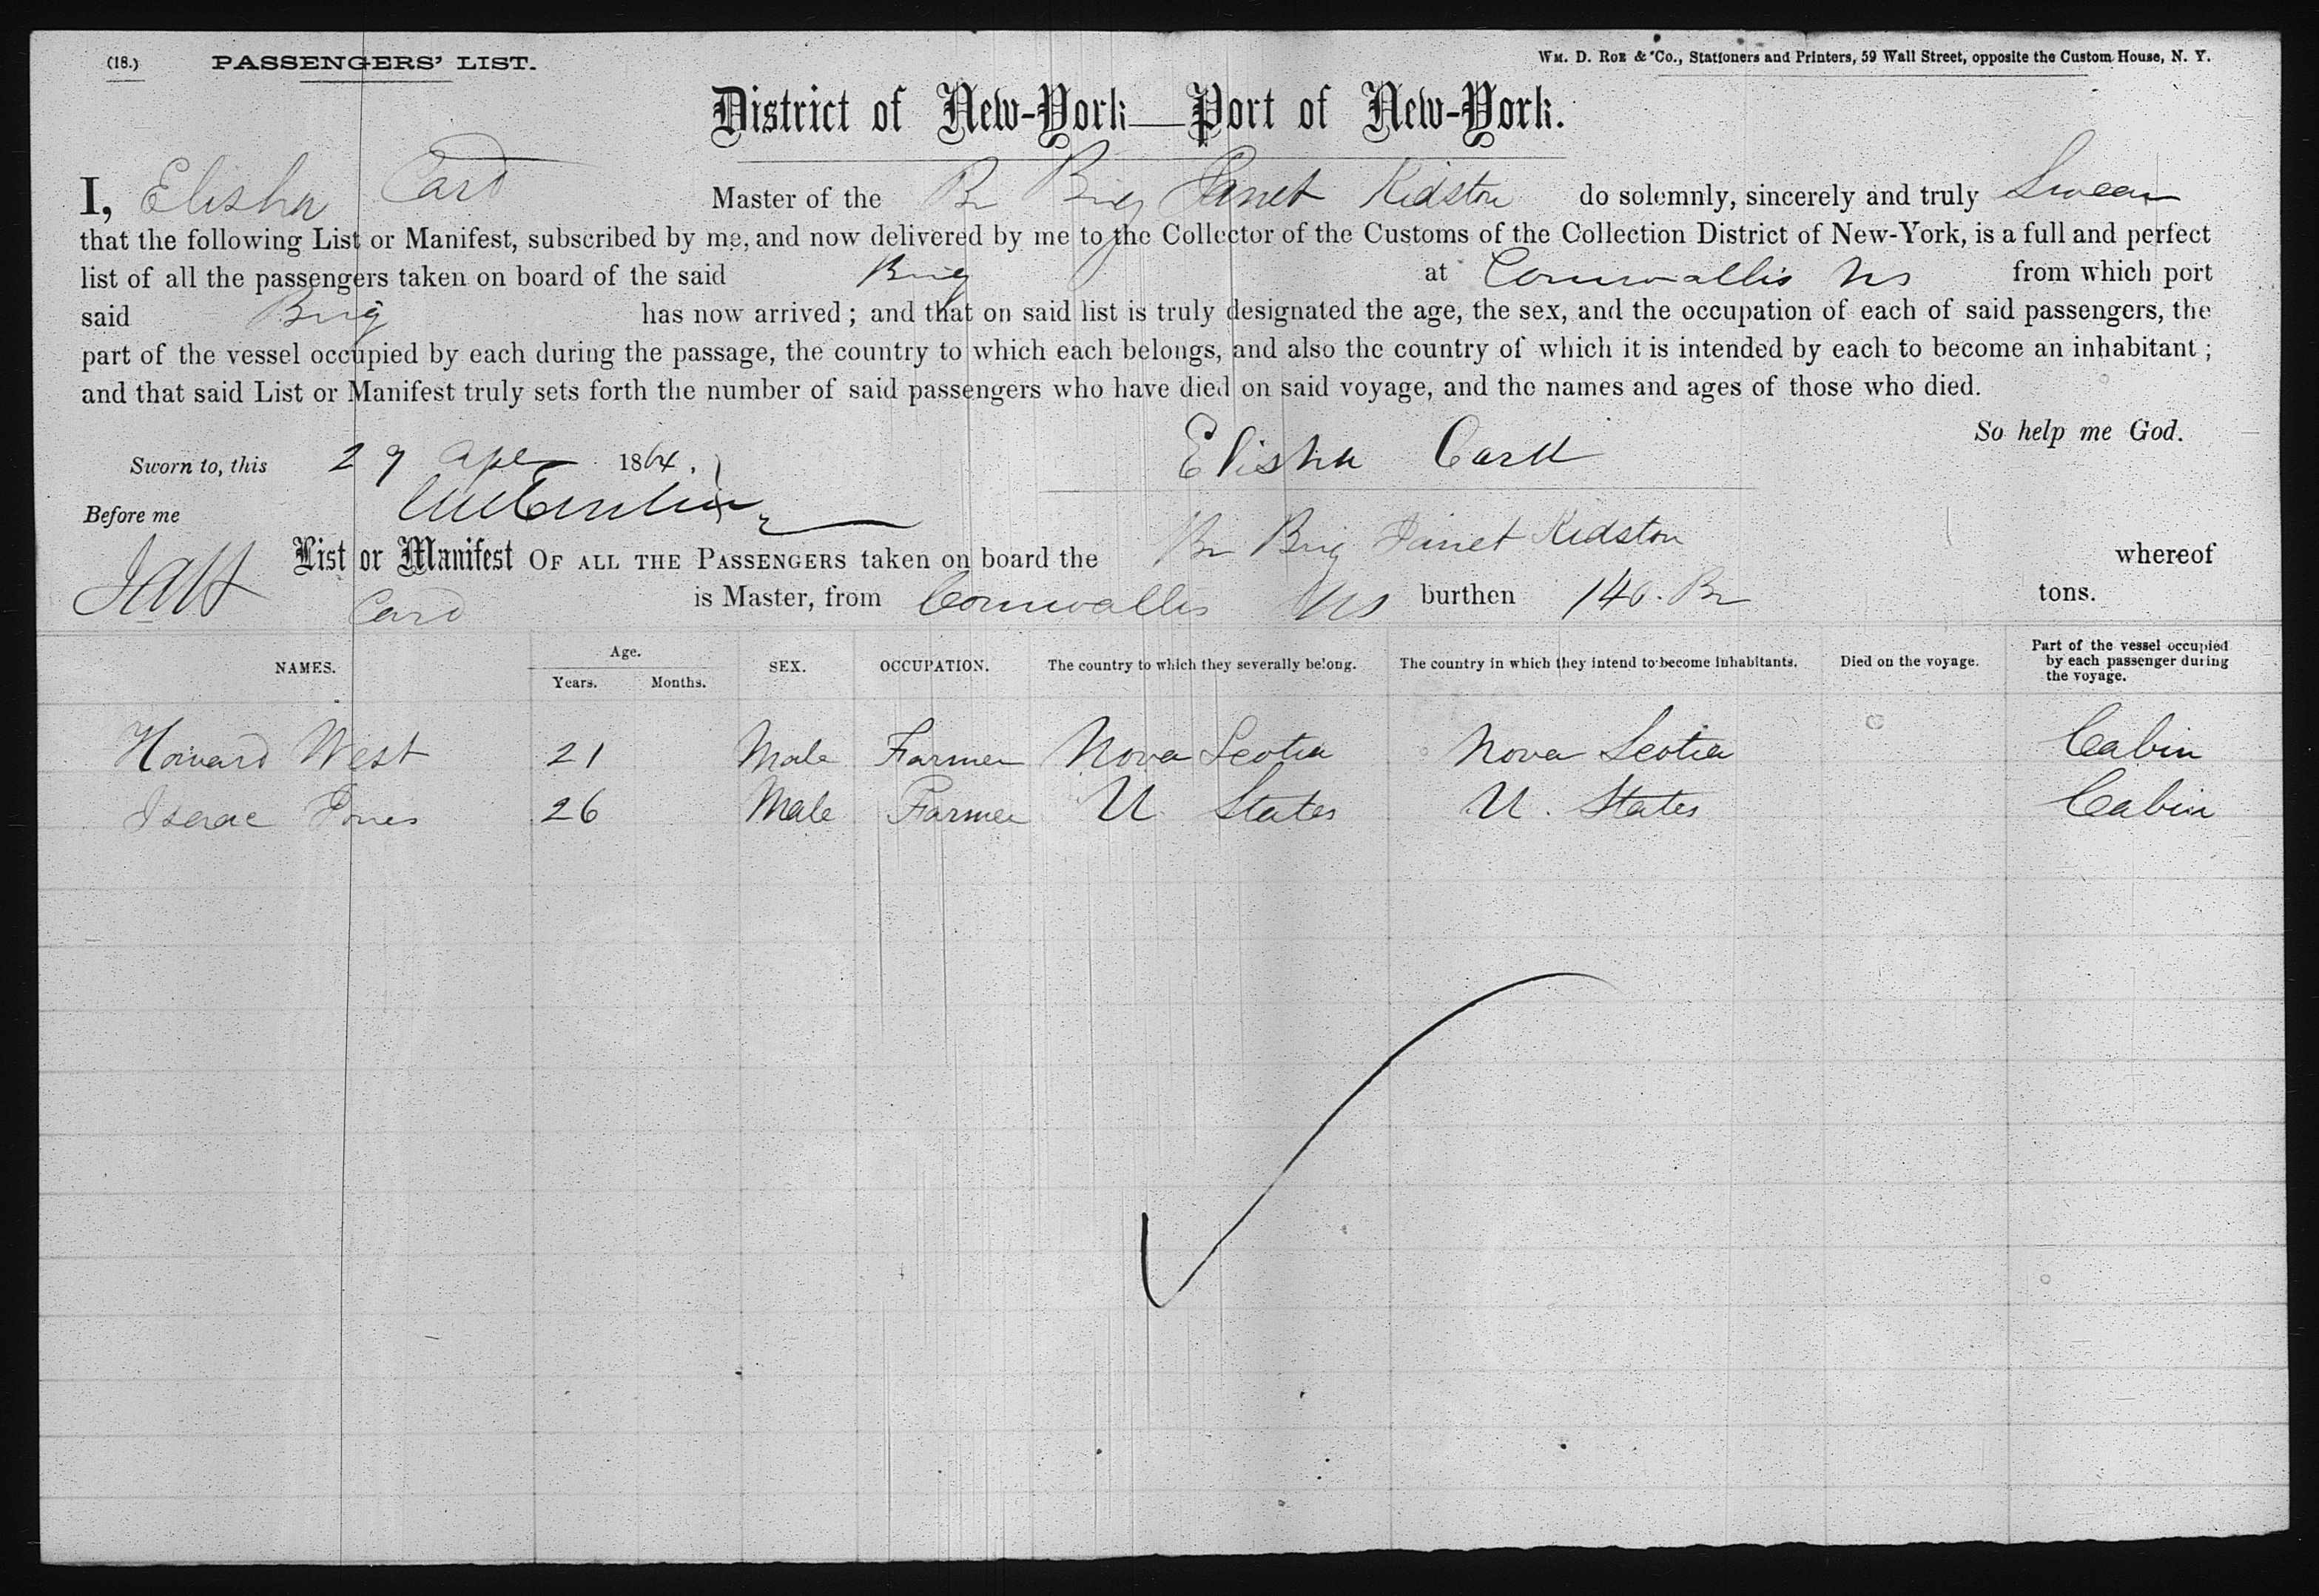 (18.) PASSENGERS' LIST. WM. D. ROE & Co., Stationers and Printers, 59 Wall Street, opposite the Custom House, N. Y.
District of New-York—Port of New-York.
I, Elisha Card Master of the Br Brig Janet Kidston do solemnly, sincerely and truly Swear
that the following List or Manifest, subscribed by me, and now delivered by me to the Collector of the Customs of the Collection District of New-York, is a full and perfect
list of all the passengers taken on board of the said Brig at Cornwallis NS from which port
said Brig has now arrived; and that on said list is truly designated the age, the sex, and the occupation of each of said passengers, the
part of the vessel occupied by each during the passage, the country to which each belongs, and also the country of which it is intended by each to become an inhabitant;
and that said List or Manifest truly sets forth the number of said passengers who have died on said voyage, and the names and ages of those who died.
So help me God.
Sworn to, this 29 Apl 1864. Elisha Card
Before me
List or Manifest OF ALL THE PASSENGERS taken on board the Br Brig Janet Kidston whereof
Card is Master, from Cornwallis NS burthen 140. Br tons.
NAMES. Age. Years. Months. SEX. OCCUPATION. The country to which they severally belong. The country in which they intend to become inhabitants. Died on the voyage. Part of the vessel occupied by each passenger during the voyage.
Howard West 21 Male Farmer Nova Scotia Nova Scotia Cabin
Iserac Jones 26 Male Farmer U. States U. States Cabin